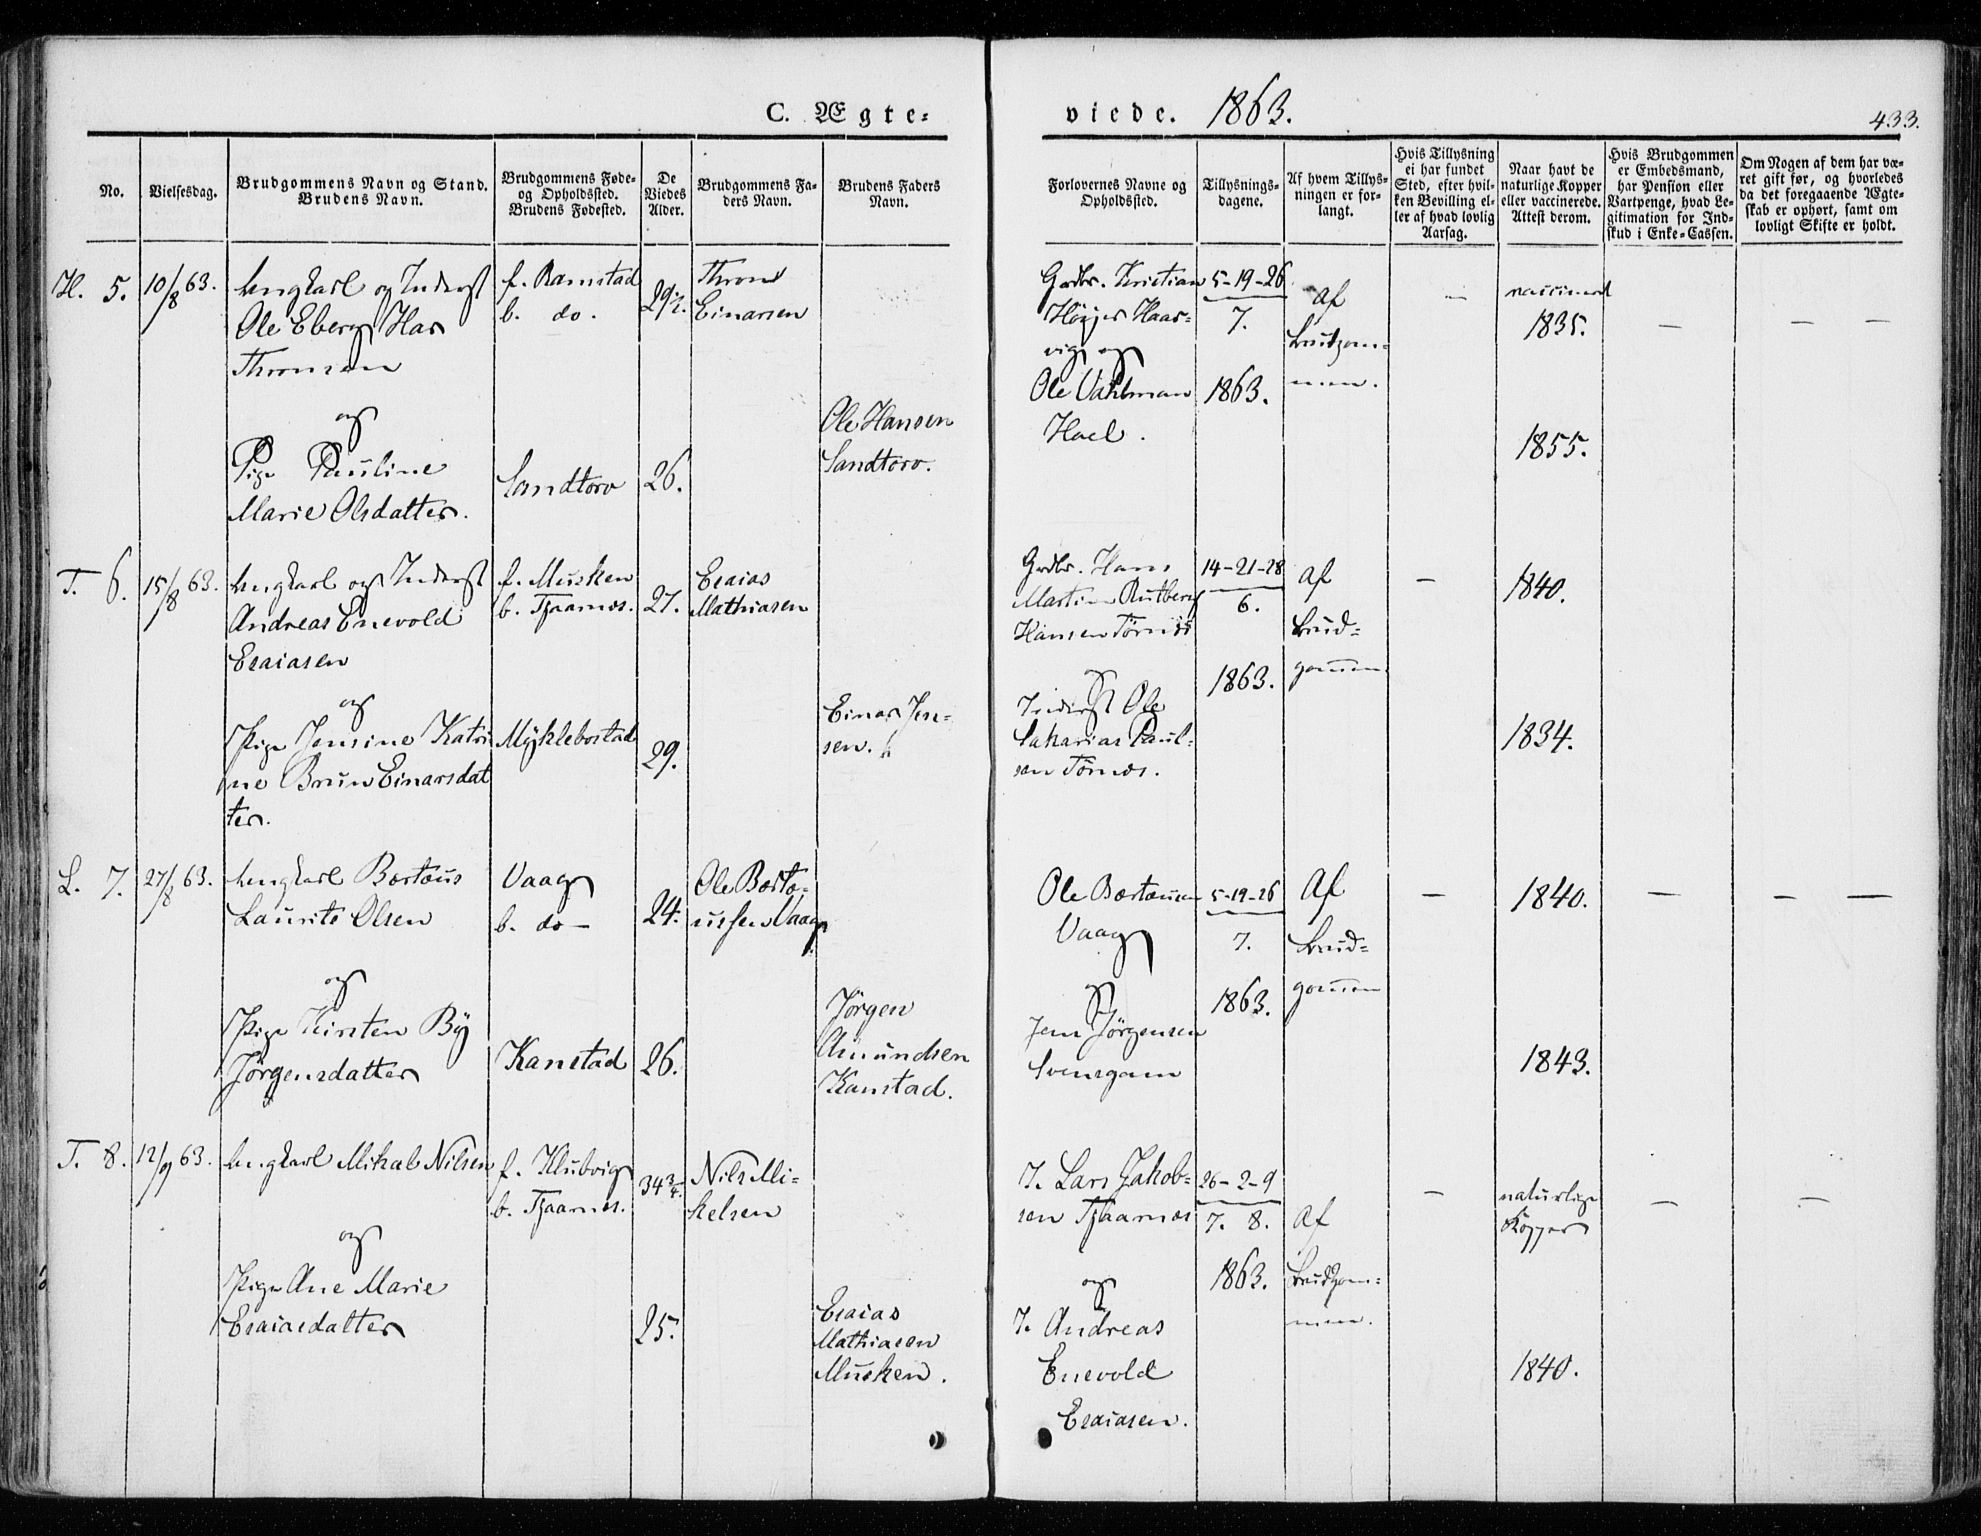 C. Ægte-
viede. 1863.
433.
No.
Vielsesdag.
Brudgommens Navn og Stand.
Brudens Navn.
Brudgommens Føde-
og Opholdssted.
Brudens Fødested.
De
Viedes
Alder.
Brudgommens Fa-
ders Navn.
Brudens Faders
Navn.
Forlovernes Navne og
Opholdssted.
Tillysnings-
dagene.
Af hvem Tillys-
ningen er for-
langt.
Hvis Tillysning
ei har fundet
Sted, efter hvil-
ken Bevilling el-
ler af hvad lovlig
Aarsag.
Naar havt de
naturlige Kopper
eller vaccinerede.
Attest derom.
Hvis Brudgommen
er Embedsmand,
har Pension eller
Vartpenge, hvad Le-
gitimation for Ind-
skud i Enke-Cassen.
Om Nogen af dem har væ-
ret gift før, og hvorledes
da det foregaaende Ægte-
skab er ophørt, samt om
lovligt Skifte er holdt.
H. 5.
10/8 63.
Ungkarl og Inderst
Ole Eberg Har
Thronsen
og
Pige Pauline
Marie Olsdatter.
f. Ramstad
b. do.
Sandtorv
29½.
26.
Thron
Einarsen
Ole Hansen
Sandtorv.
Grdbr. Kristian
Høyer Haar-
vig og
Ole Vahlman
Hoel.
5-19-26
7.
1863.
Af
brudgom-
men.
—
vaccineret
1835.
1855.
—
—
—
T. 6.
15/8 63.
Ungkarl og Inderst
Andreas Enevold
Esaiasen
og
Pige Jensine Katri
ne Brun Einarsdat
ter.
f. Musken
b. Tjaarnes.
Myklebostad
27.
29.
Esaias
Mathiasen
Einar Jen-
sen.
Grdbr. Hans
Martin Rutberg
Hansen Tørnes
og
Inderst Ole
Sakarias Paul-
sen Tørnes.
14-21-28
6.
1863.
Af
brud-
gommen
—
1840.
1834.
L. 7.
27/8 63.
Ungkarl Bærtæus
Laurits Olsen
og
Pige Kirsten By
Jørgensdatter
Vaag
b. do —
Kanstad
24.
26.
Ole Bærtæ-
ussen Vaag
Jørgen
Amundsen
Kanstad.
Ole Bærtæusen
Vaag
og
Jens Jørgensen
Svensgam
5-19-26
7.
1863.
Af
brud-
gommen
—
1840.
1843.
—
—
—
T. 8.
12/9 63.
Ungkarl Mikal Nilsen
og
Pige Ane Marie
Esaiasdatter
f. Klubvig
b. Tjaarnes.
34¾.
25.
Nils Mi-
kelsen
Esaias
Mathiasen
Musken.
I. Lars Jakob-
sen Tjaarnes
og
I. Andreas
Enevold
Esaiasen.
26-2-9
7. 8.
1863.
Af
brudgom-
men.
—
naturlige
Kopper
1840.
—
—